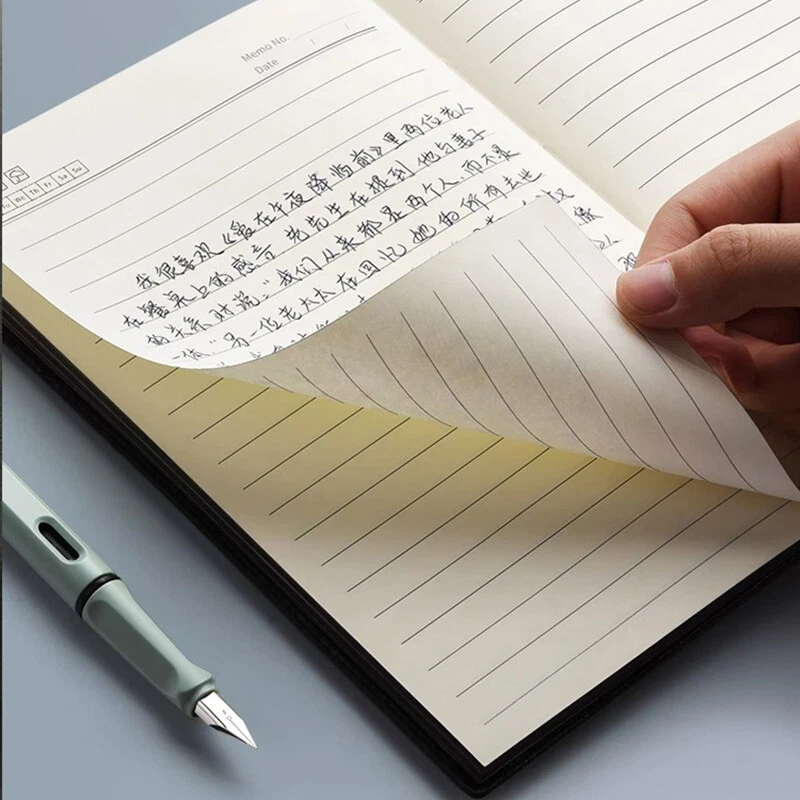 Memo No.
Date
We Th Fr Sa Su
我很喜欢《爱在午夜降临前》里两位老人
在餐桌上的感言 老先生在提到他与妻子
的关系时说:"我们从来都是两个人,而不是
一体"另一位老太太在回忆她的所有去世